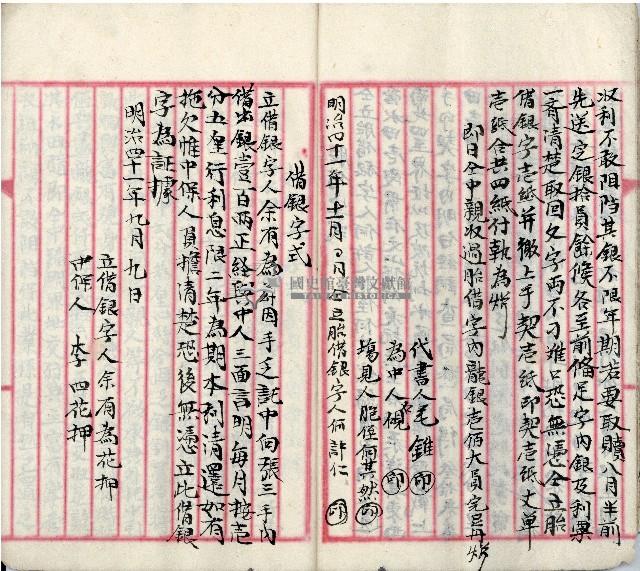 收利不敢阻挡其銀不限年期若要取贖八月半前
先送定銀拾員餘候冬至前備足字內銀及利粟
一齊清楚取回欠字両不刁难口恐無憑仝立胎
借銀字壱紙并繳上手契壱紙印契壱紙丈单
壱紙合共四紙付執為炤
即日仝中親收過胎借字內龍銀壱佰大員完足再炤
代書人毛錐印
為中人硯印
塲見人胞侄何其然印
明治四十一年十一月 日 仝立胎借銀字人何許仁 印
借銀字式
立借銀字人余有為因手乏託中向張三手內
借出銀壹百両正経中人三面言明每月按壱
分五里行利息限二年為期本利清還如有
拖欠惟中保人員擔清楚恐後無憑立此借銀
字為証據
明治四十一年九月九日
立借銀字人余有為花押
中保人 李四花押
國史館臺灣文獻館
TAIWAN HISTORICA